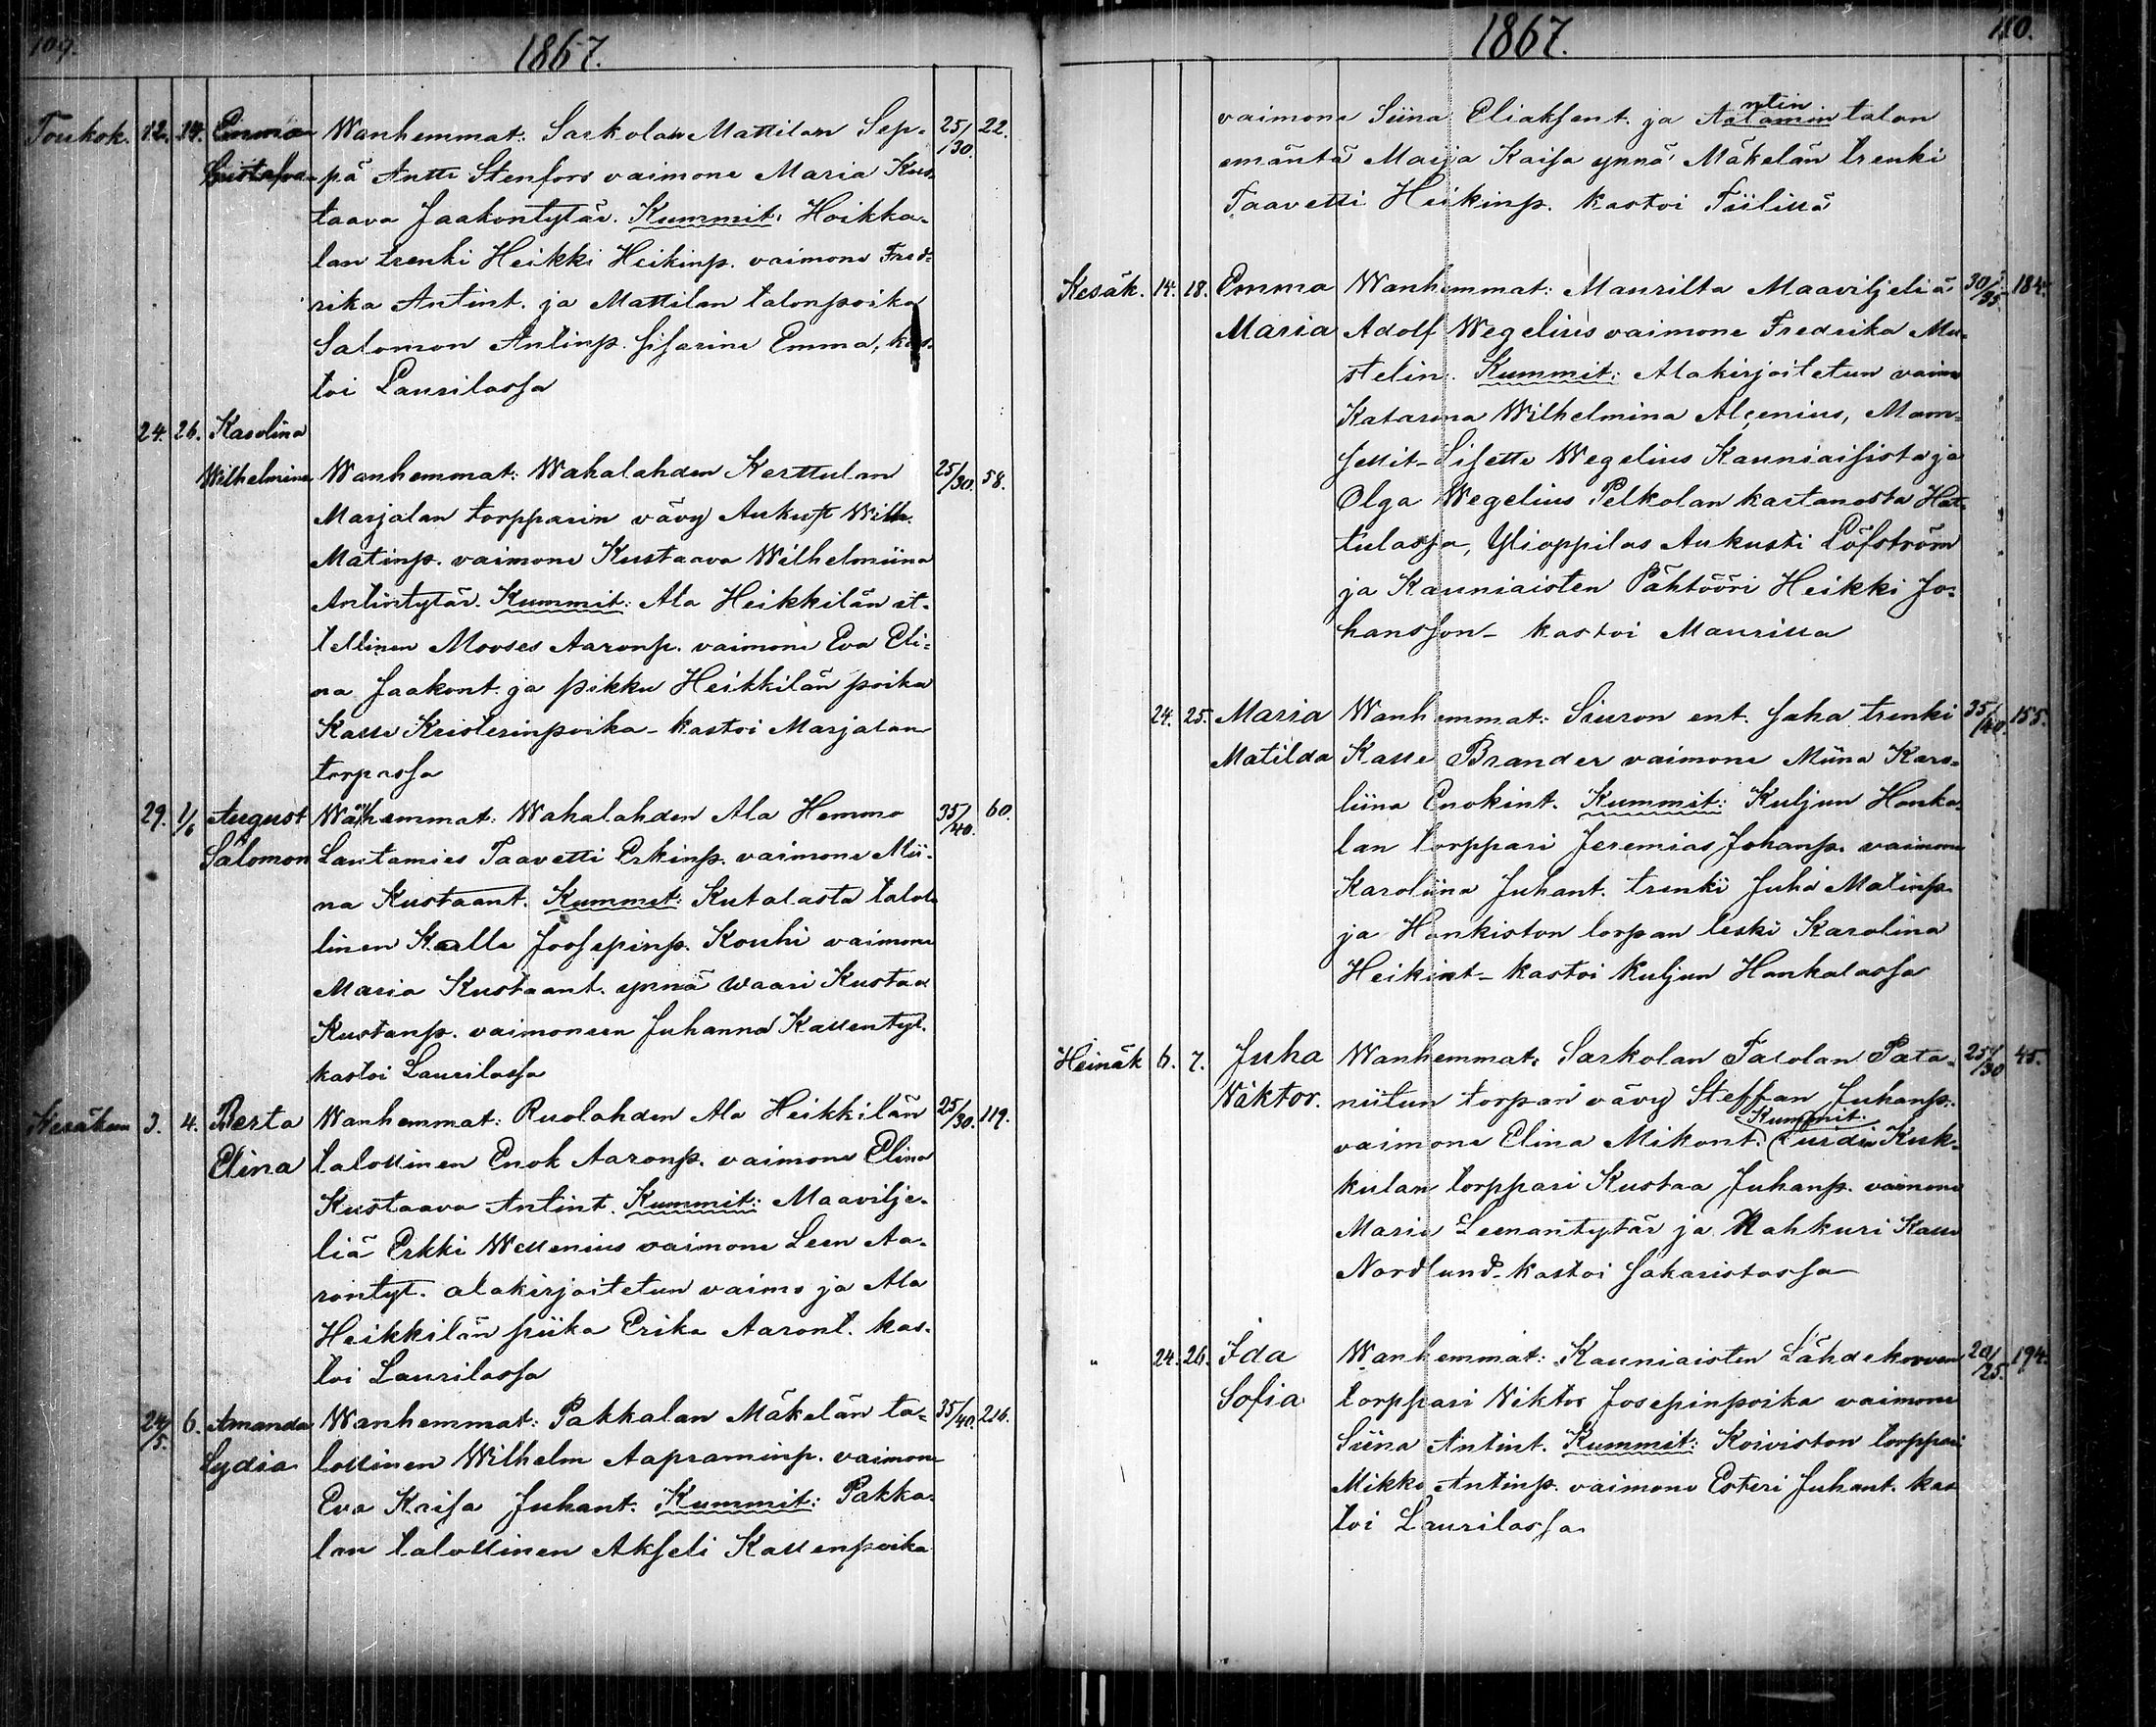 109.
1867.
Toukok. 12. 14. Emma Wanhemmat: Sarkolan Mattilan Sep- 25/30. 22.
Gustafva pä Antti Stenfors vaimone Maria Kus-
taava Jaakontytär. Kummit: Hoikka-
lan trenki Heikki Heikinp. vaimone Fred-
rika Antint. ja Mattilan talonpoika
Salomon Antinp. sisarine Emma, kas-
toi Laurilassa
" 24. 26. Karolina
Wilhelmina Wanhemmat: Wahalahden Kerttulan 25/30. 58.
Marjalan torpparin vävy Aukust Wilh.
Matinp. vaimone Kustaava Wilhelmiina
Antintytär. Kummit: Ala Heikkilän it-
tellinen Mooses Aaronp. vaimone Eva Eli-
na Jaakont. ja pikku Heikkilän poika
Kalle Kristerinpoika - kastoi Marjalan
torpassa
29. 1/6 August Wanhemmat: Wahalahden Ala Hemmo 35/40. 60.
Salomon Lautamies Taavetti Erkinp. vaimone Mii-
na Kustaant. Kummit: Kutalasta talol-
linen Kalle Joosepinp. Kouhi vaimone
Maria Kustaant. ynnä waari Kustaa
Kustanp. vaimoneen Juhanna Kallentyt.
kastoi Laurilassa
Kesäkun 3. 4. Berta Wanhemmat: Ruolahden Ala Heikkilän 25/30. 119.
Elina talollinen Enok Aaronp. vaimone Elina
Kustaava Antint. Kummit: Maavilje-
liä Erkki Wellenius vaimone Leen Aa-
rontyt. alakirjoitetun vaimo ja Ala
Heikkilän piika Erika Aaront. kas-
toi Laurilassa
24/5. 6. Amanda Wanhemmat: Pakkalan Mäkelän ta- 35/40. 216.
Lydia lollinen Wilhelm Aapraminp. vaimone
Eva Kaisa Juhant. Kummit: Pakka-
lan talollinen Akseli Kallenpoika
110.
1867.
ntin
vaimone Siina Eliaksent. ja talon
emäntä Maija Kaisa ynnä Mäkelän trenki
Taavetti Heikinp. kastoi Tiilissä
Kesäk. 14. 18. Emma Wanhemmat: Maurilta Maaviljeliä 30/35. 184.
Maria Adolf Wegelius vaimone Fredrika Mu-
stelin. Kummit: Alakirjoitetun vaimo
Katarina Wilhelmina Alcenius, Mam-
sellit - Lisette Wegelius Kauniaisista ja
Olga Wegelius Pelkolan kartanosta Hat-
tulassa, Ylioppilas Aukusti Löfström
ja Kauniaisten Pähtööri Heikki Jo-
hansson - kastoi Maurilla
24. 25. Maria Wanhemmat: Siuron ent. saha trenki 35/40. 155.
Matilda Kalle Brander vaimone Miina Karo-
liina Enokint. Kummit: Kuljun Honka-
lan torppari Jeremias Johanp. vaimone
Karoliina Juhant. trenki Juha Matinp.
ja Honkiston torpan leski Karolina
Heikint - kastoi Kuljun Honkalassa
Heinäk 6. 7. Juha Wanhemmat: Sarkolan Tarolan Pata- 25/30 45.
Wäktor. niitun torpan vävy Steffan Juhanp.
Kummit:
vaimone Elina Mikont. Kuk-
kulan torppari Kustaa Juhanp. vaimone
Maria Leenantytär ja Nahkuri Kalle
Nordlund - kastoi Sakaristossa
" 24. 26. Ida Wanhemmat: Kauniaisten Lähdekorven 20/25. 194.
Sofia torppari Wiktor Josepinpoika vaimone
Siina Antint. Kummit: Koiviston torppari
Mikko Antinp. vaimone Esteri Juhant. kas
toi Laurilassa